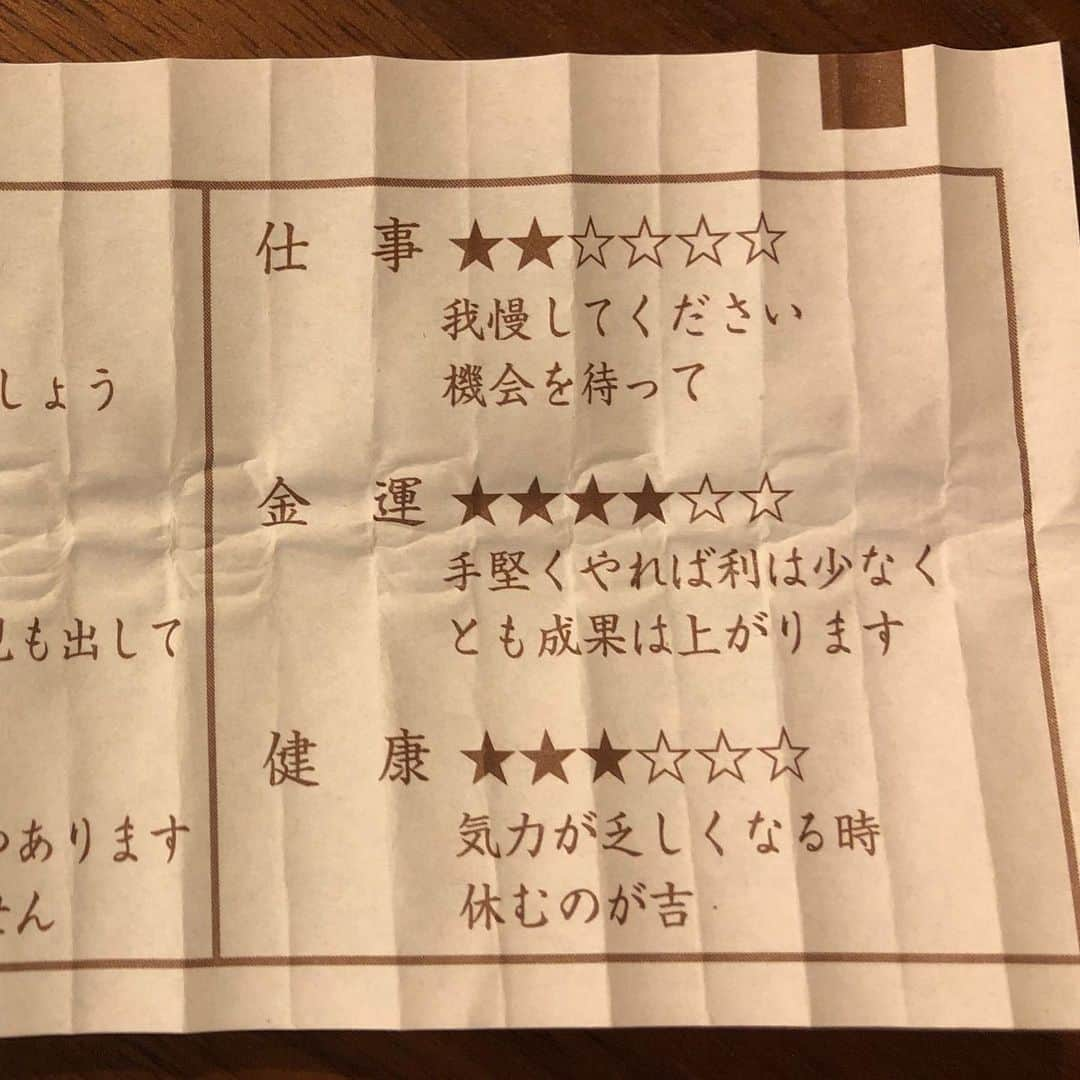 しょう
も出して
あります
せん
仕 事 ★★☆☆☆☆
我慢してください
機会を待って
金 運 ★★★★☆☆
手堅くやれば利は少なく
とも成果は上がります
健 康 ★★★☆☆☆
気力が乏しくなる時
休むのが吉